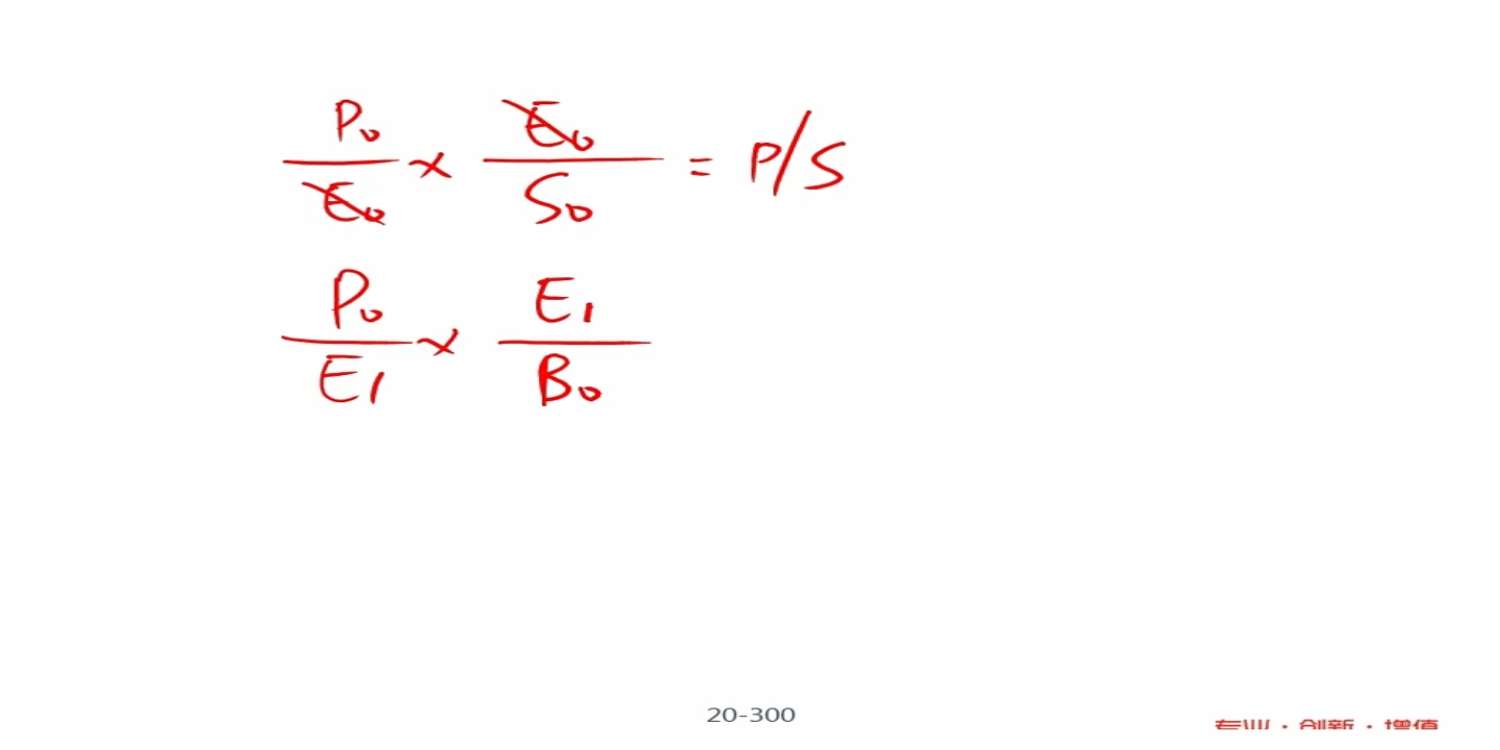 P₀/E₀ × E₀/S₀ = P/S
P₀/E₁ × E₁/B₀
20-300
专业·创新·增值